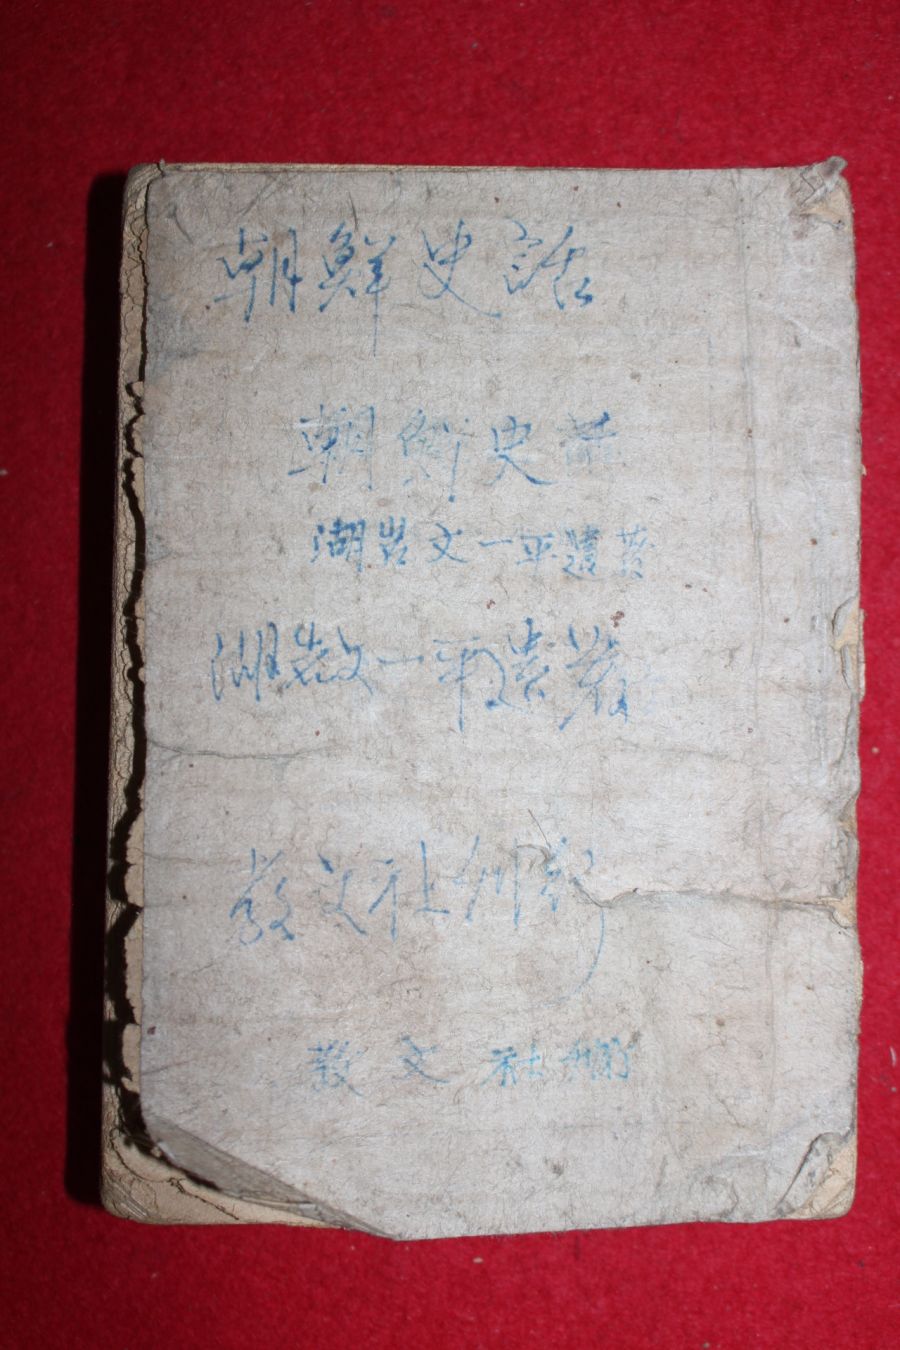 朝鮮史話
朝鮮史話
湖岩文一平遺著
湖岩文一平遺著
文社刊行
文社刊行